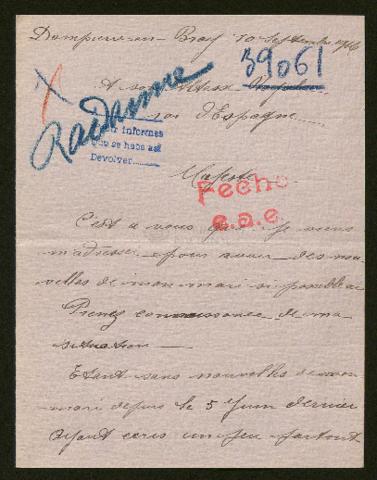 Dompierre-en-Bray 10 Septembre 1916
39061
A son
roi d'Espagne
Radamme
Informes
que se haba asi
Devolver
Majesté
Fecho
e.a.e.
C'est a vous que je viens
m'adresser pour avoir des nou
velles de mon mari si possible
Prenez connaissance de ma
situation
Etant sans nouvelles de mon
mari depuis le 5 Juin dernier
ayant ecris un peu partout